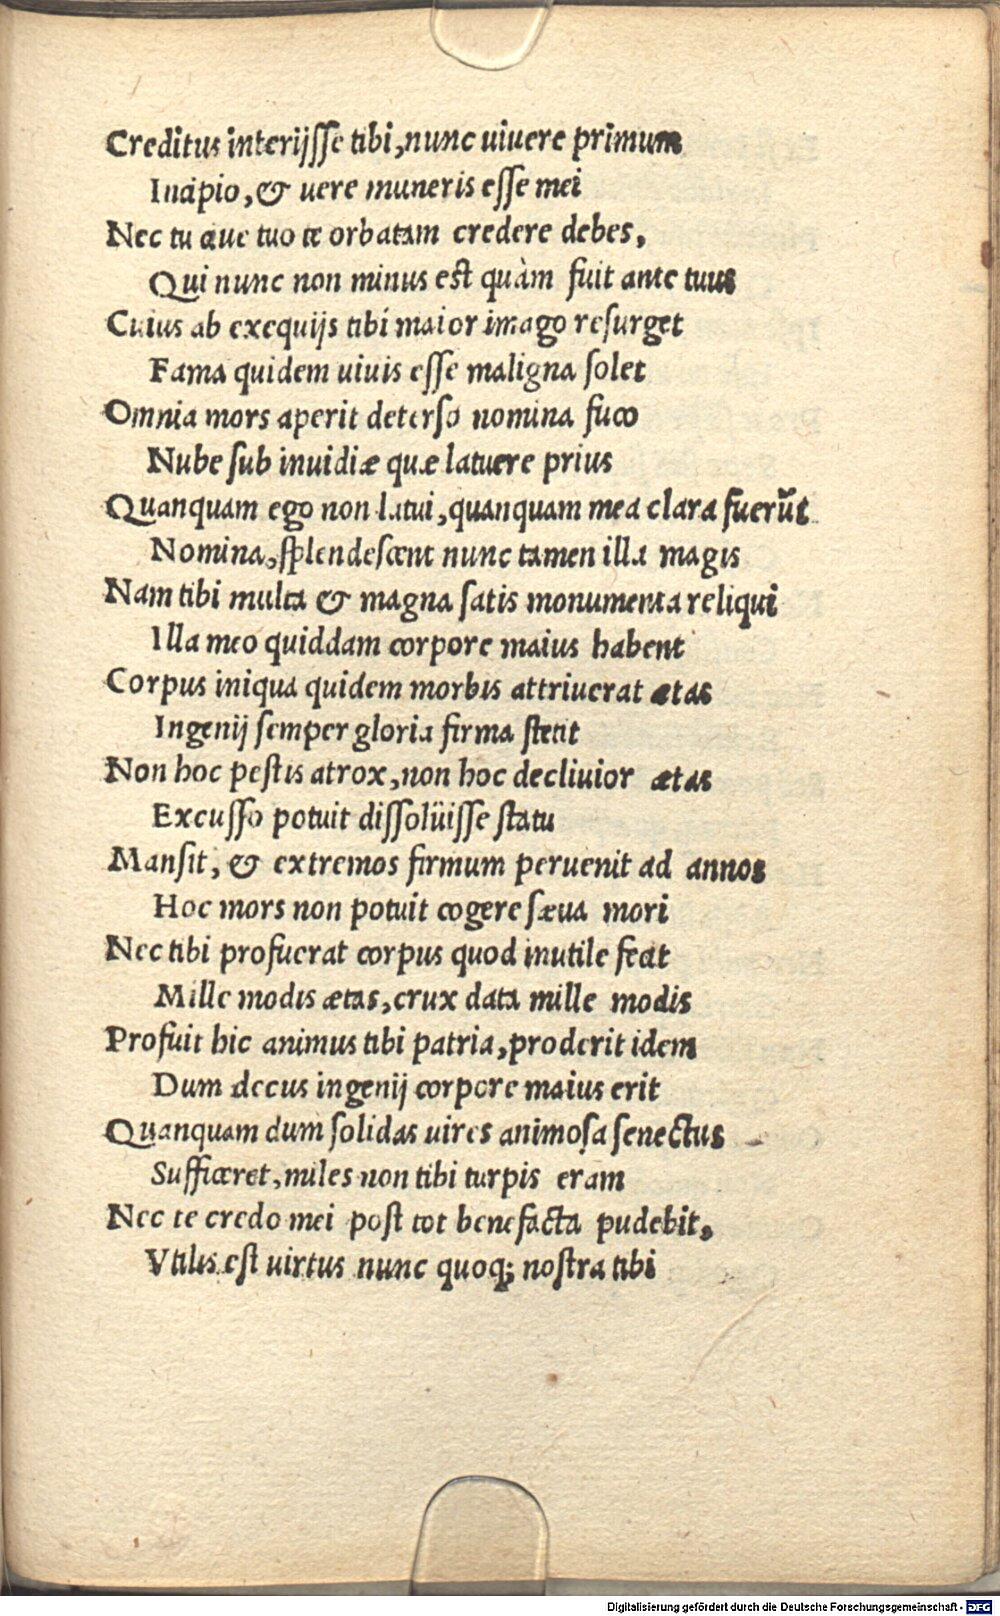 Creditus interijsse tibi, nunc uiuere primum
Incipio, & uere muneris esse mei
Nec tu ciue tuo te orbatam credere debes,
Qui nunc non minus est quàm fuit ante tuus
Cuius ab exequijs tibi maior imago resurget
Fama quidem uiuis esse maligna solet
Omnia mors aperit deterso nomina fuco
Nube sub inuidiæ quæ latuere prius
Quanquam ego non latui, quanquam mea clara fuerūt
Nomina, splendescent nunc tamen illa magis
Nam tibi multa & magna satis monumenta reliqui
Illa meo quiddam corpore maius habent
Corpus iniqua quidem morbis attriuerat ætas
Ingenij semper gloria firma stetit
Non hoc pestis atrox, non hoc decliuior ætas
Excusso potuit dissolüisse statu
Mansit, & extremos firmum peruenit ad annos
Hoc mors non potuit cogere sæua mori
Nec tibi profuerat corpus quod inutile fecit
Mille modis ætas, crux data mille modis
Profuit hic animus tibi patria, proderit idem
Dum decus ingenij corpore maius erit
Quanquam dum solidas uires animosa senectus
Sufficeret, miles non tibi turpis eram
Nec te credo mei post tot benefacta pudebit,
Vtilis est uirtus nunc quoq; nostra tibi
Digitalisierung gefördert durch die Deutsche Forschungsgemeinschaft - DFG